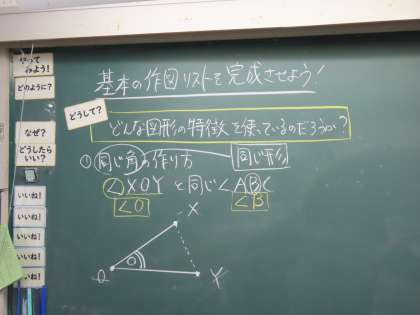 基本の作図リストを完成させよう!
やって
みよう!
どのように?
どうして?
どんな図形の特徴を使っているのだろうか?
なぜ?
どうしたら
いい?
① 同じ角の作り方 同じ形
∠XOY と同じ∠ABC
∠O ∠B
いいね!
いいね!
いいね!
いいね!
いいね!
X
O
Y